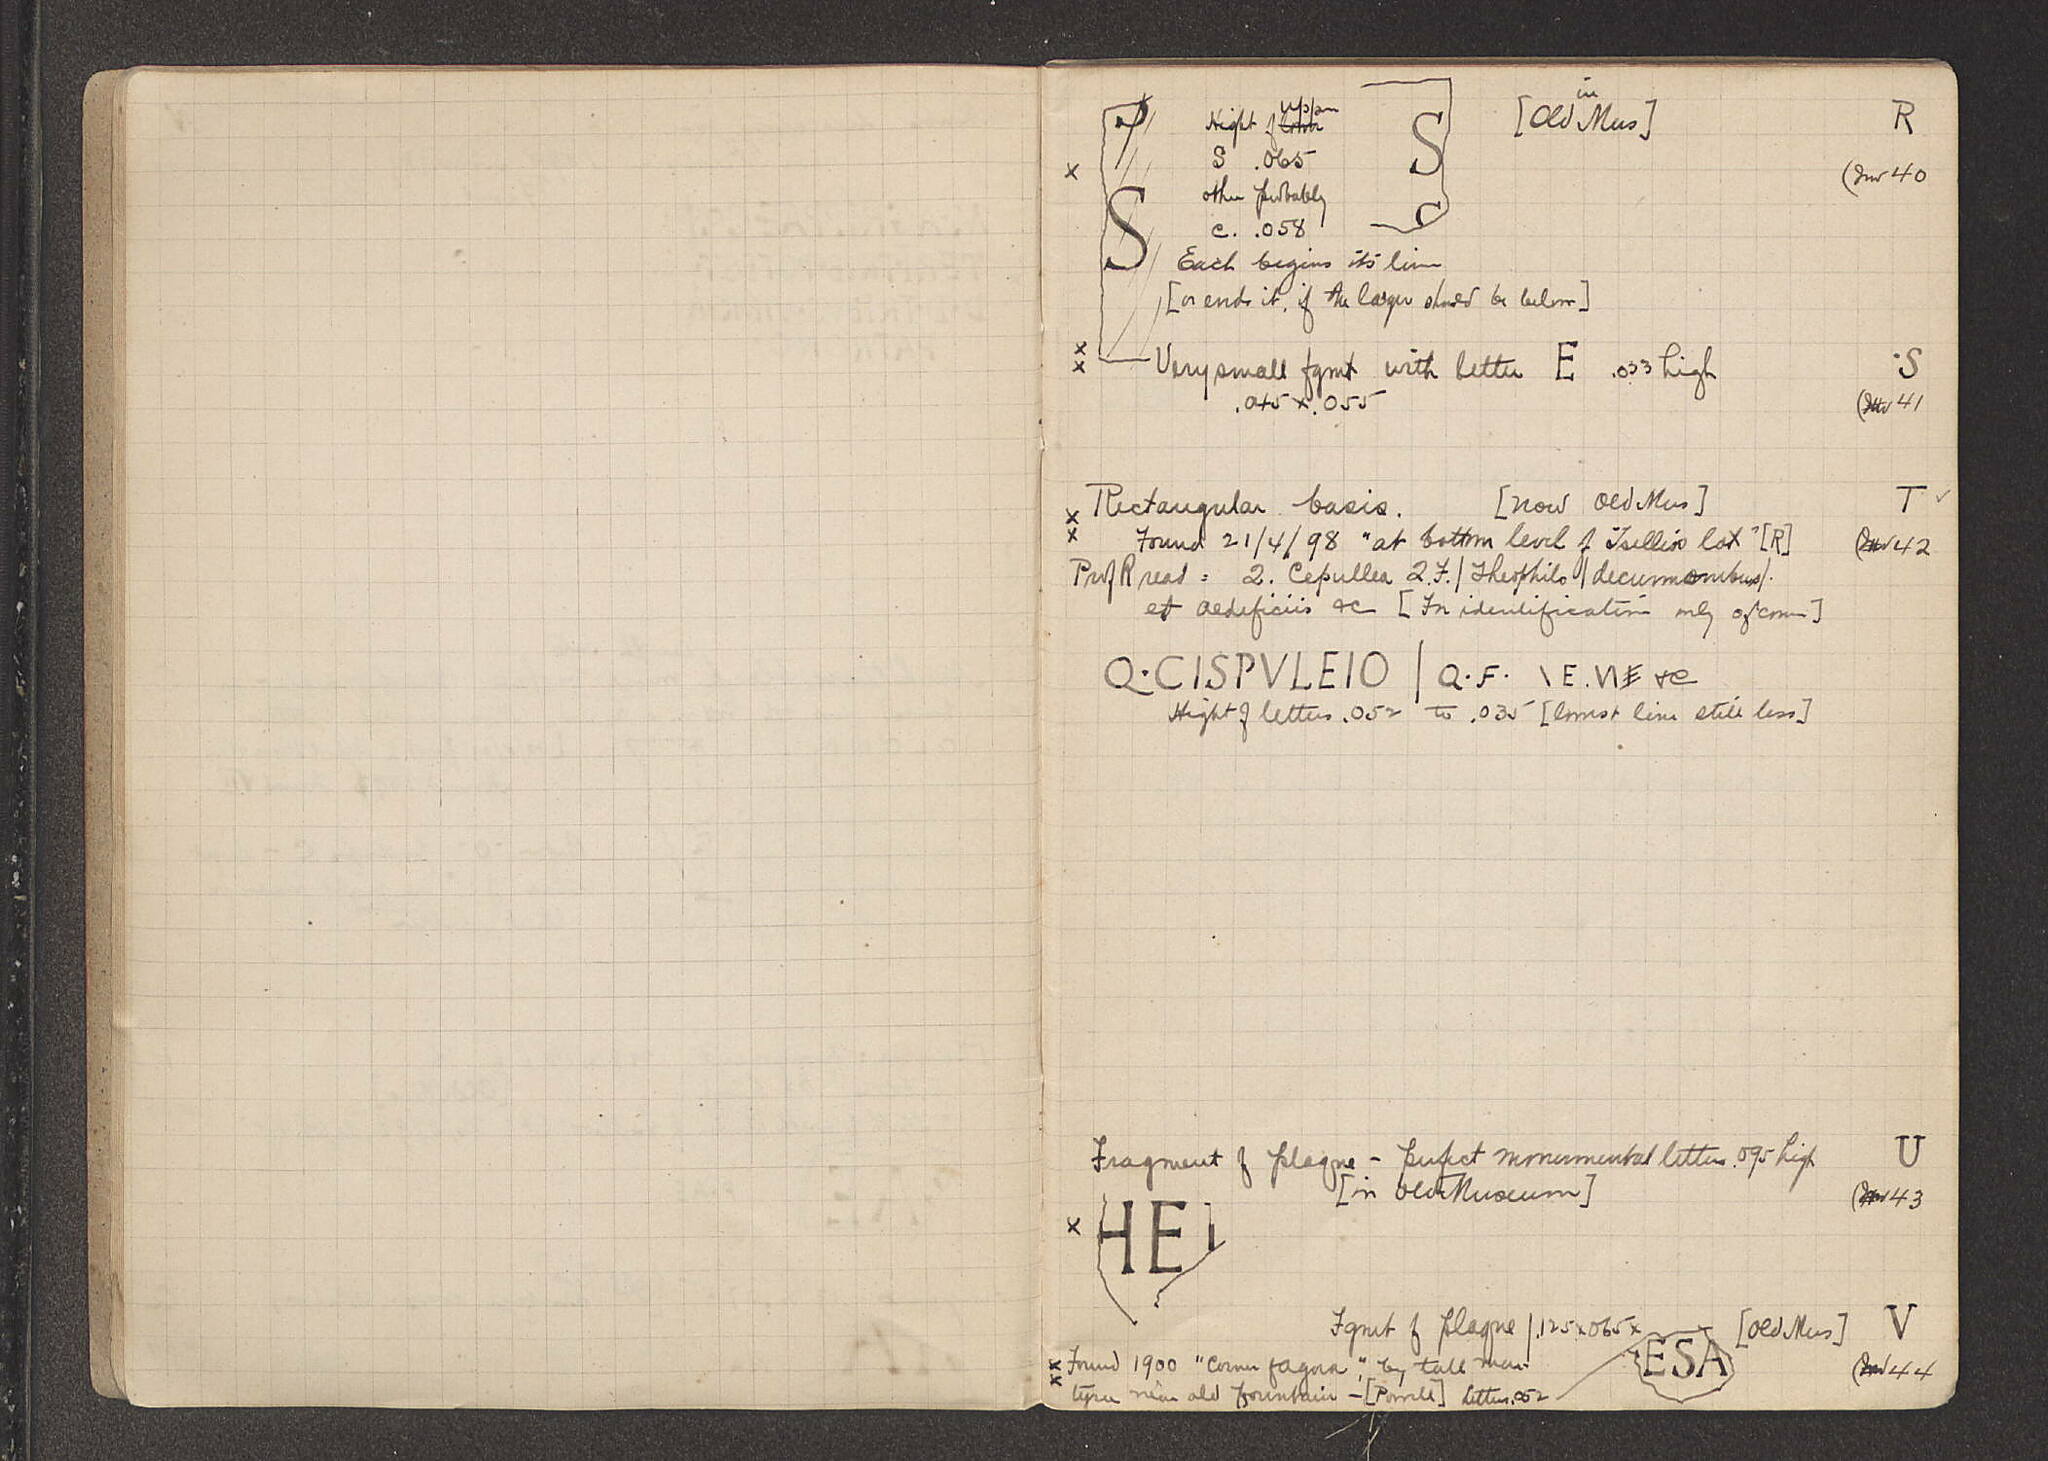 in
[Old Mus] R
Hight of upper
S .065
other probably
c. .058
S
S
(Inv 40
Each begins its line
[or ends it, if the larger should be below]
Very small fgmt with letter E .033 high S
.045 x .055
(Inv 41
Rectangular basis. [now Old Mus] T
Found 21/4/98 "at bottom level of Tselios lot" [R]
(Inv 42
Prof R read = Q. Cepullea Q.F. / Theophilo /
et aedificiis &c [For identification only of course]
Q·CISPVLEIO | Q.F. \E. &c
Hight of letters .052 to .035 [lowest line still less]
Fragment of plaque – perfect monumental letters .095 high U
[in Old Museum]
(Inv 43
HEI
Fgmt of plaque / .125 x .065 x [Old Mus] V
ESA
(Inv 44
Found 1900 "corner of agora", by tall
near old fountain – [Powell] letters .052